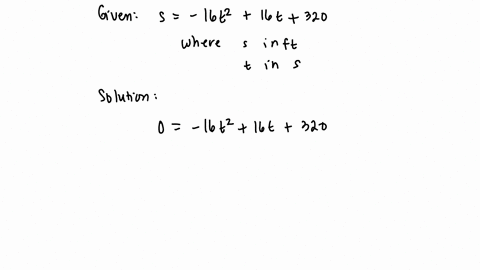 Given: s = -16t² + 16t + 320
where s in ft
t in s
Solution:
0 = -16t² + 16t + 320